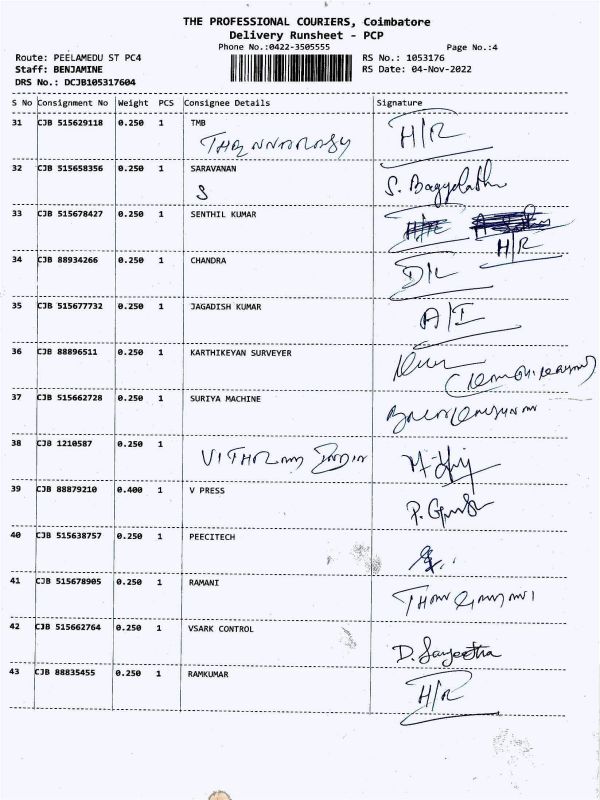 THE PROFESSIONAL COURIERS, Coimbatore
Delivery Runsheet - PCP
Phone No.:0422-3505555 Page No.:4
Route: PEELAMEDU ST PC4 RS No.: 1053176
Staff: BENJAMINE RS Date: 04-Nov-2022
DRS No.: DCJB105317604
S No Consignment No Weight PCS Consignee Details Signature
31 CJB 515629118 0.250 1 TMB H/R
32 CJB 515658356 0.250 1 SARAVANAN
S S.
33 CJB 515678427 0.250 1 SENTHIL KUMAR
H/R
34 CJB 88934266 0.250 1 CHANDRA
D/L
35 CJB 515677732 0.250 1 JAGADISH KUMAR
A/I
36 CJB 88896511 0.250 1 KARTHIKEYAN SURVEYER
37 CJB 515662728 0.250 1 SURIYA MACHINE
38 CJB 1210587 0.250 1
39 CJB 88879210 0.400 1 V PRESS
P.
40 CJB 515638757 0.250 1 PEECITECH
41 CJB 515678905 0.250 1 RAMANI
42 CJB 515662764 0.250 1 VSARK CONTROL
D. Sangeetha
43 CJB 88835455 0.250 1 RAMKUMAR
H/R